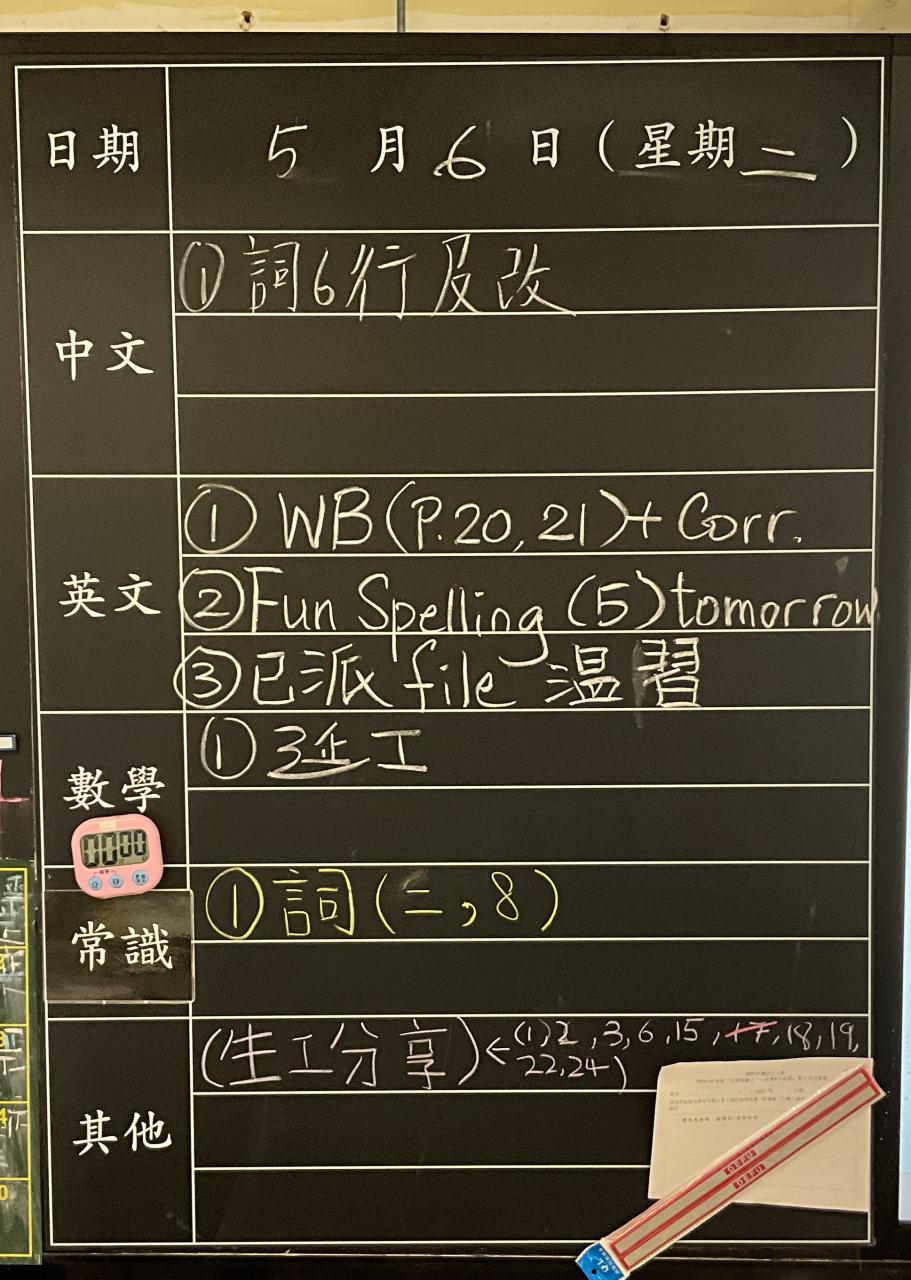 日期
5 月 6 日 (星期 二 )
中文
① 詞6行及改
英文
① WB(P.20,21)+ Corr.
② Fun Spelling (5) tomorrow
③ 已派 file 温習
數學
① 延工
00:00
常識
① 詞(二,8)
其他
(生工分享)←(1)2,3,6,15,17,18,19,
22,24)
DEFU
DEFU